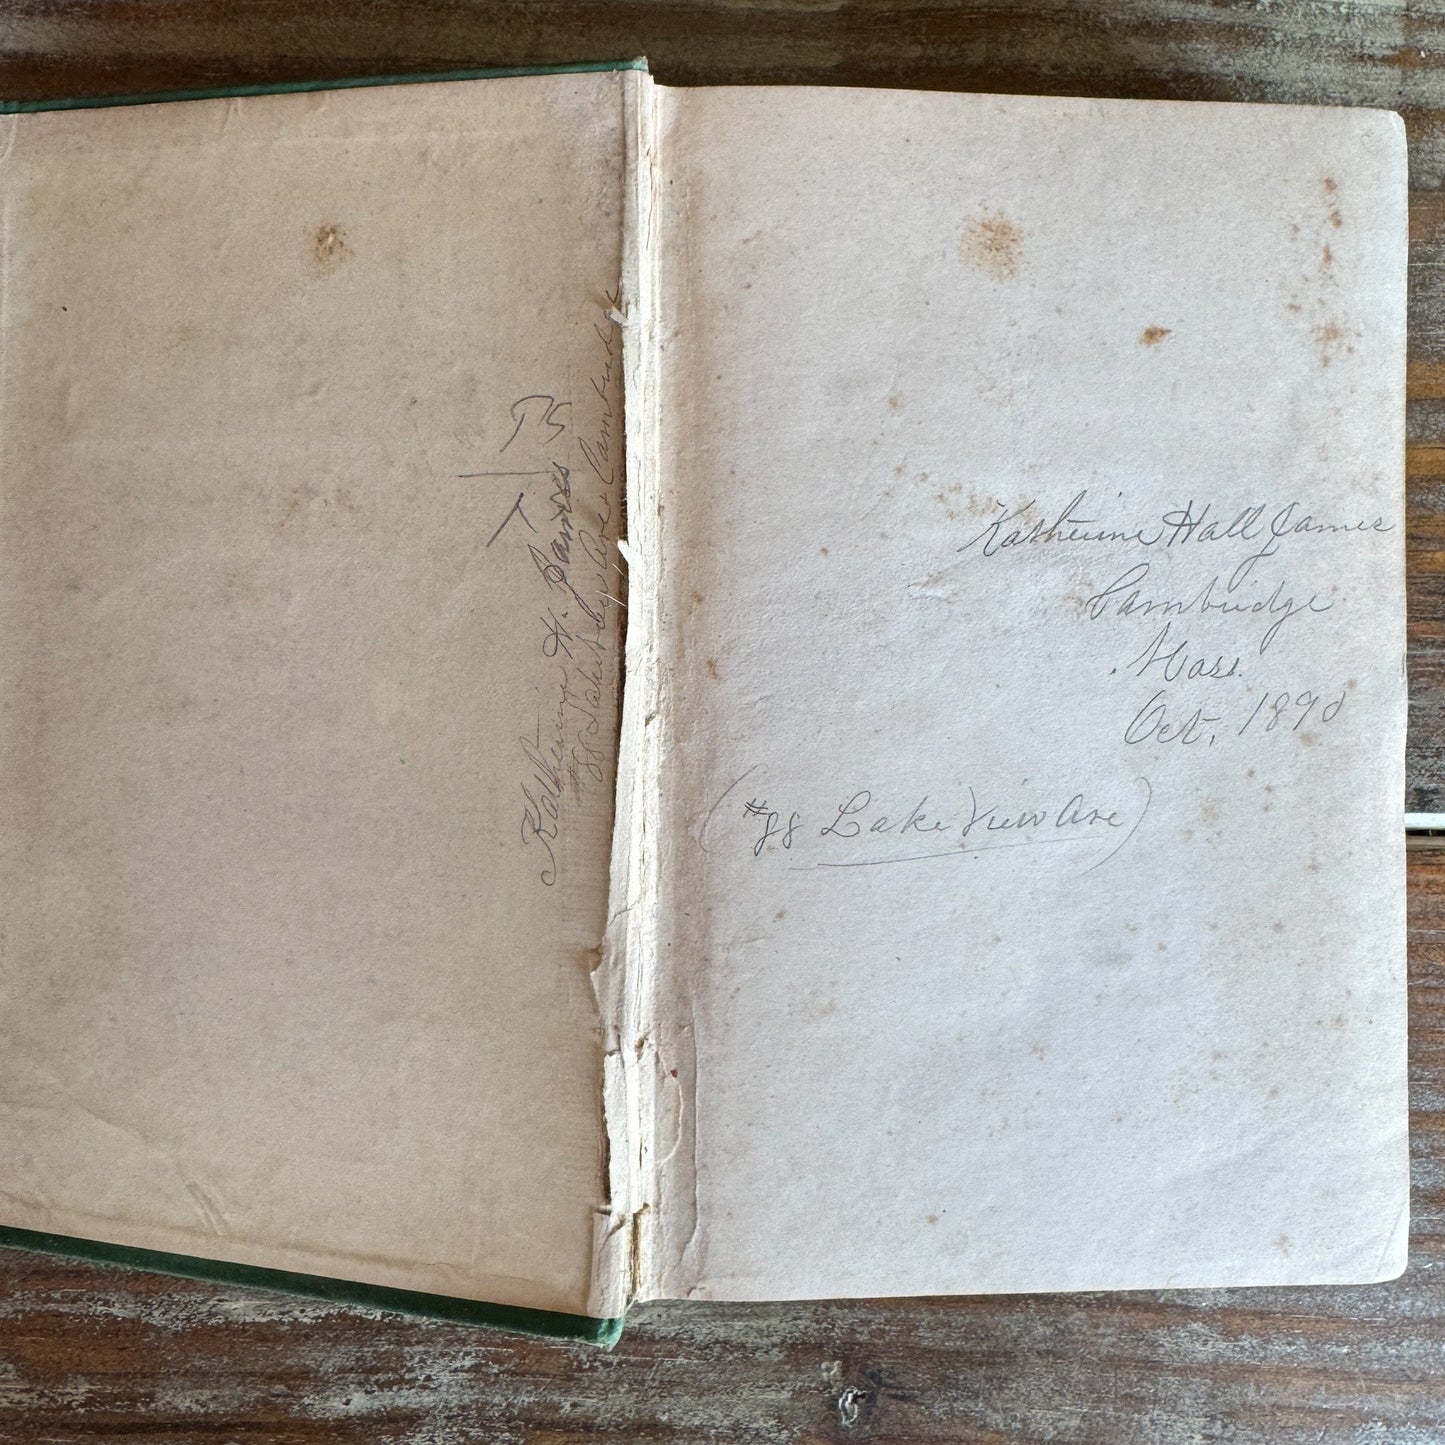 Katherine H. James
88 Lake
Ave Cambridge
Katherine Hall James
Cambridge
Mass.
Oct. 189
(#88 Lake View Ave)